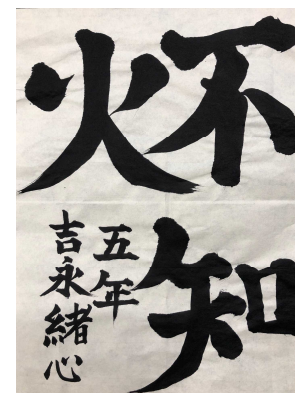 不知
火
五年
吉永緒心